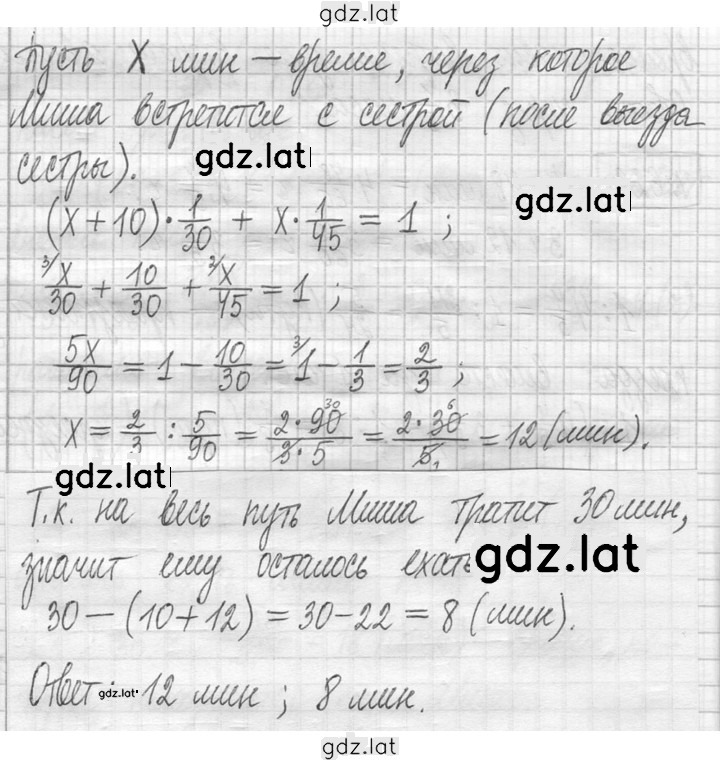 gdz.lat
Пусть X мин – время, через которое
Миша встретится с сестрой (после выезда
сестры).
gdz.lat
gdz.lat
(X+10)·1/30 + X·1/45 = 1 ;
3/X/30 + 10/30 + 2/X/45 = 1 ;
5X/90 = 1 – 10/30 = 3/1 – 1/3 = 2/3 ;
X = 2/3 : 5/90 = 2·90 30/3·5 = 2·30 6/5 1 = 12 (мин).
gdz.lat
Т.к. на весь путь Миша тратит 30 мин,
значит ему осталось ехать
gdz.lat
30 – (10+12) = 30 – 22 = 8 (мин).
Ответ: 12 мин ; 8 мин.
gdz.lat
gdz.lat